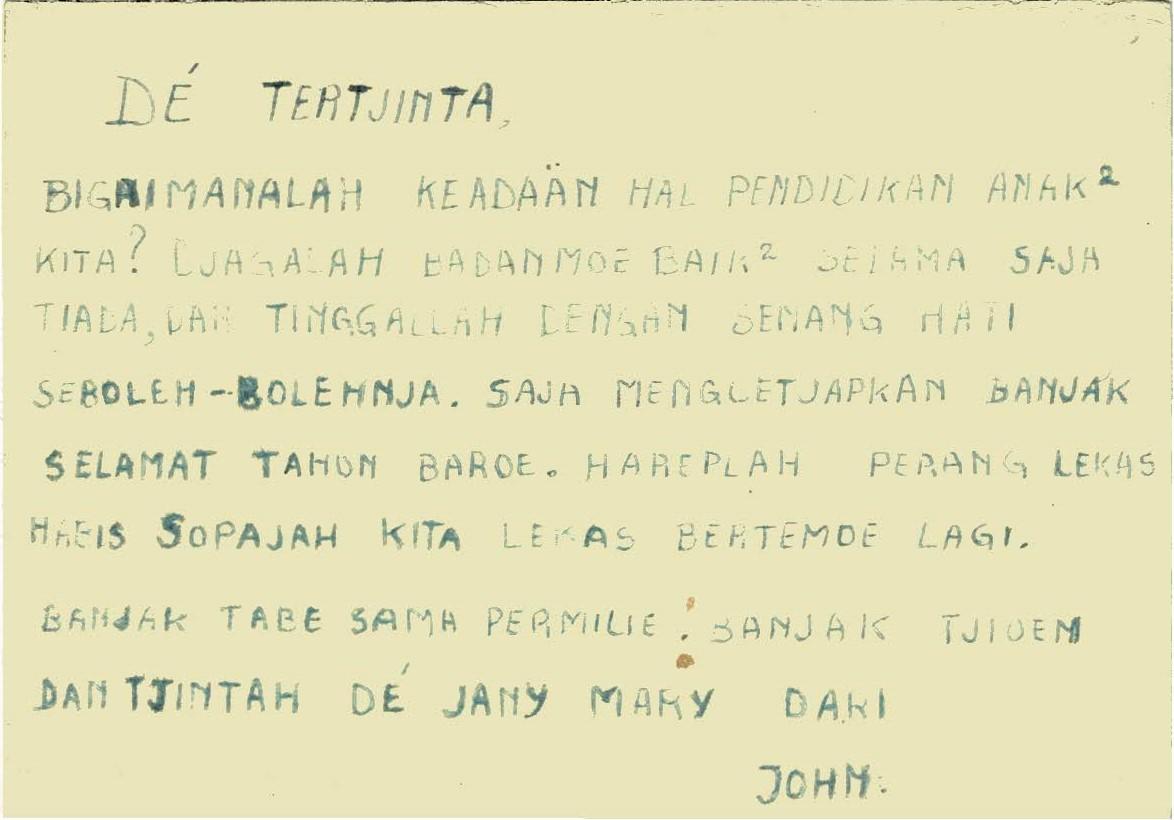 DÉ TERTJINTA,
BIGAIMANALAH KEADAÄN HAL PENDIDIKAN ANAK²
KITA? DJAGALAH BADANMOE BAIK² SELAMA SAJA
TIADA, DAN TINGGALLAH DENGAN SENANG HATI
SEBOLEH-BOLEHNJA. SAJA MENGOETJAPKAN BANJAK
SELAMAT TAHON BAROE. HAREPLAH PERANG LEKAS
HABIS SOPAJAH KITA LEKAS BERTEMOE LAGI.
BANJAK TABE SAMA PERMILIE! BANJAK TJIOEM
DAN TJINTAH DÉ JANY MARY DARI
JOHN.